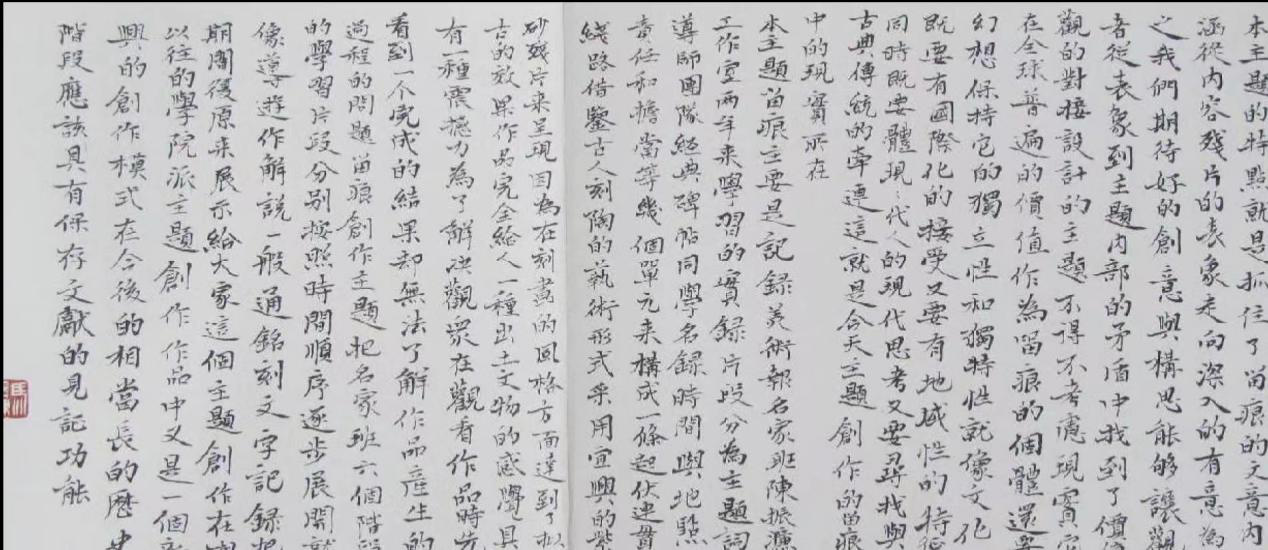 本主題的特點就是抓住了留痕的文意內
涵從內容殘片的表象走向深入的有意為
之我們期待好的創意與構思能够讓觀
者從表象到主題內部的矛盾中找到了價
觀的對接設計的主題不得不考慮現實
在全球普遍的價值作為留痕的個體還要
幻想保持它的獨立性和獨特性就像文化
既要有國際化的接受又要有地域性的特征
同時既要體現代人的現代思考又要尋找與
古典傳統的牽連這就是今天主題創作的留痕
中的現實所在
本主題留痕主要是記録美術報名家班陳振濂
工作室兩年来學習的實録片段分為主題詞
導師團隊經典碑帖同學名録時間與地點
責任和擔當等幾個單元来構成一條起伏連貫
綫路借鑒古人刻陶的藝術形式采用宜興的紫
砂殘片来呈現因為在刻畫的風格方面達到了拟
古的效果作品完全給人一種出土文物的感覺具
有一種震撼力為了解决觀衆在觀看作品時先
看到一个完成的結果却無法了解作品産生的
過程的問題留痕創作主題把名家班六個階段
的學習片段分别按照時間順序逐步展開就
像導遊作解說一般通銘刻文字記録把
期間復原来展示給大家這個主題創作在
以往的學院派主題創作作品中又是一個新
興的創作模式在今後的相當長的歷史
階段應該具有保存文獻的見記功能